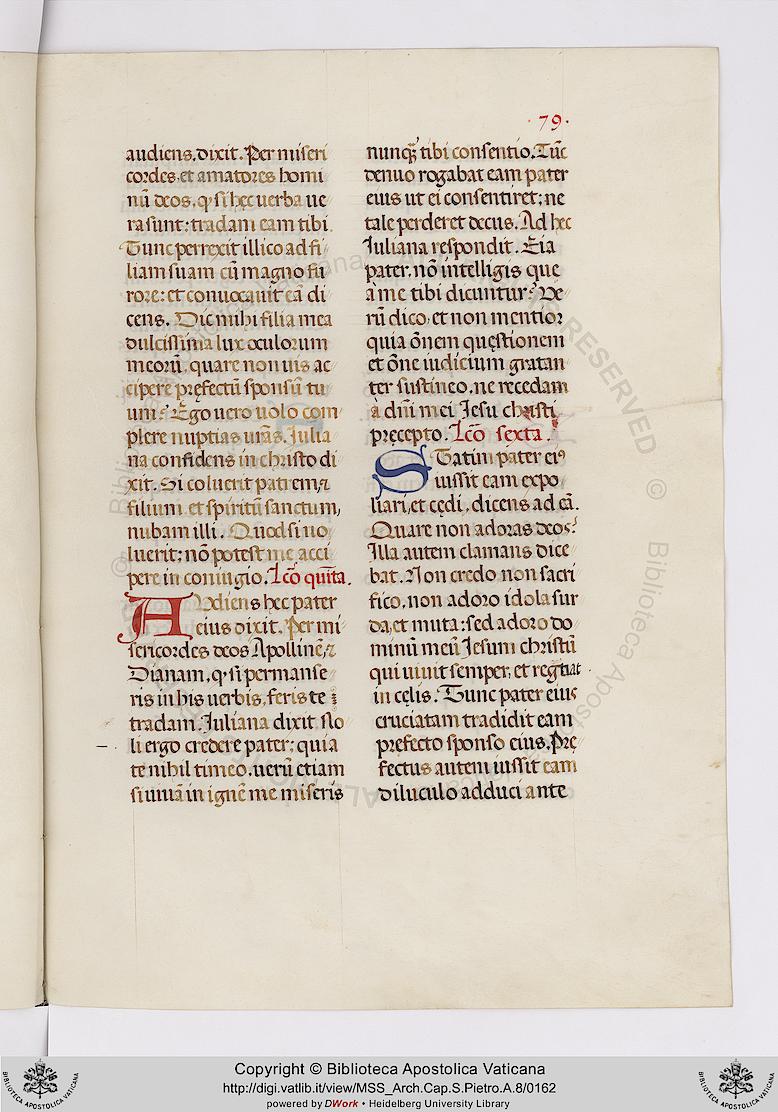 · 79 ·
audiens, dixit. Per miseri
cordes, et amatores homi
nū deos, ꝙ si hęc uerba ue
ra sunt: tradam eam tibi.
Tunc perrexit illico ad fi
liam suam cū magno fu
rore: et conuocauit eā di
cens. Dic mihi filia mea
dulcissima lux oculorum
meorū, quare non uis ac
cipere pręfectū sponsū tu
um? Ego uero uolo com
plere nuptias ur̄as. Julia
na confidens in christo di
xit. Si coluerit patrem, ⁊
filium et spiritū sanctum,
nubam illi. Quod si no
luerit: nō potest me acci
pere in coniugio. Lcō quīta.
Audiens hęc pater
eius dixit. Per mi
sericordes deos Apollinē, ⁊
Dianam, ꝙ si permanse
ris in his uerbis, feris te
tradam. Juliana dixit. No
li ergo credere pater: quia
te nihil timeo. uerū etiam
si uiuā in ignē me miseris
nunqꝫ tibi consentio. Tūc
denuo rogabat eam pater
eius ut ei consentiret: ne
tale perderet decus. Ad hęc
Juliana respondit. Eia
pater, nō intelligis que
à me tibi dicuntur? Ve
rū dico, et non mentior
quia ōnem quęstionem
et ōne iudicium gratan
ter sustineo, ne recedam
à dn̄i mei Jesu christi
pręcepto. Lcō sexta.
Statim pater eiꝰ
iussit eam expo
liari, et cędi, dicens ad eā.
Quare non adoras deos?
Illa autem clamans dice
bat. Non credo non sacri
fico, non adoro idola sur
da, et muta: sed adoro do
minū meū Jesum christū
qui uiuit semper, et regnat
in cęlis. Tunc pater eius
cruciatam tradidit eam
pręfecto sponso eius. Prę
fectus autem iussit eam
diluculo adduci ante
Copyright © Biblioteca Apostolica Vaticana
http://digi.vatlib.it/view/MSS_Arch.Cap.S.Pietro.A.8/0162
powered by DWork • Heidelberg University Library
BIBLIOTECA APOSTOLICA VATICANA
BIBLIOTECA APOSTOLICA VATICANA